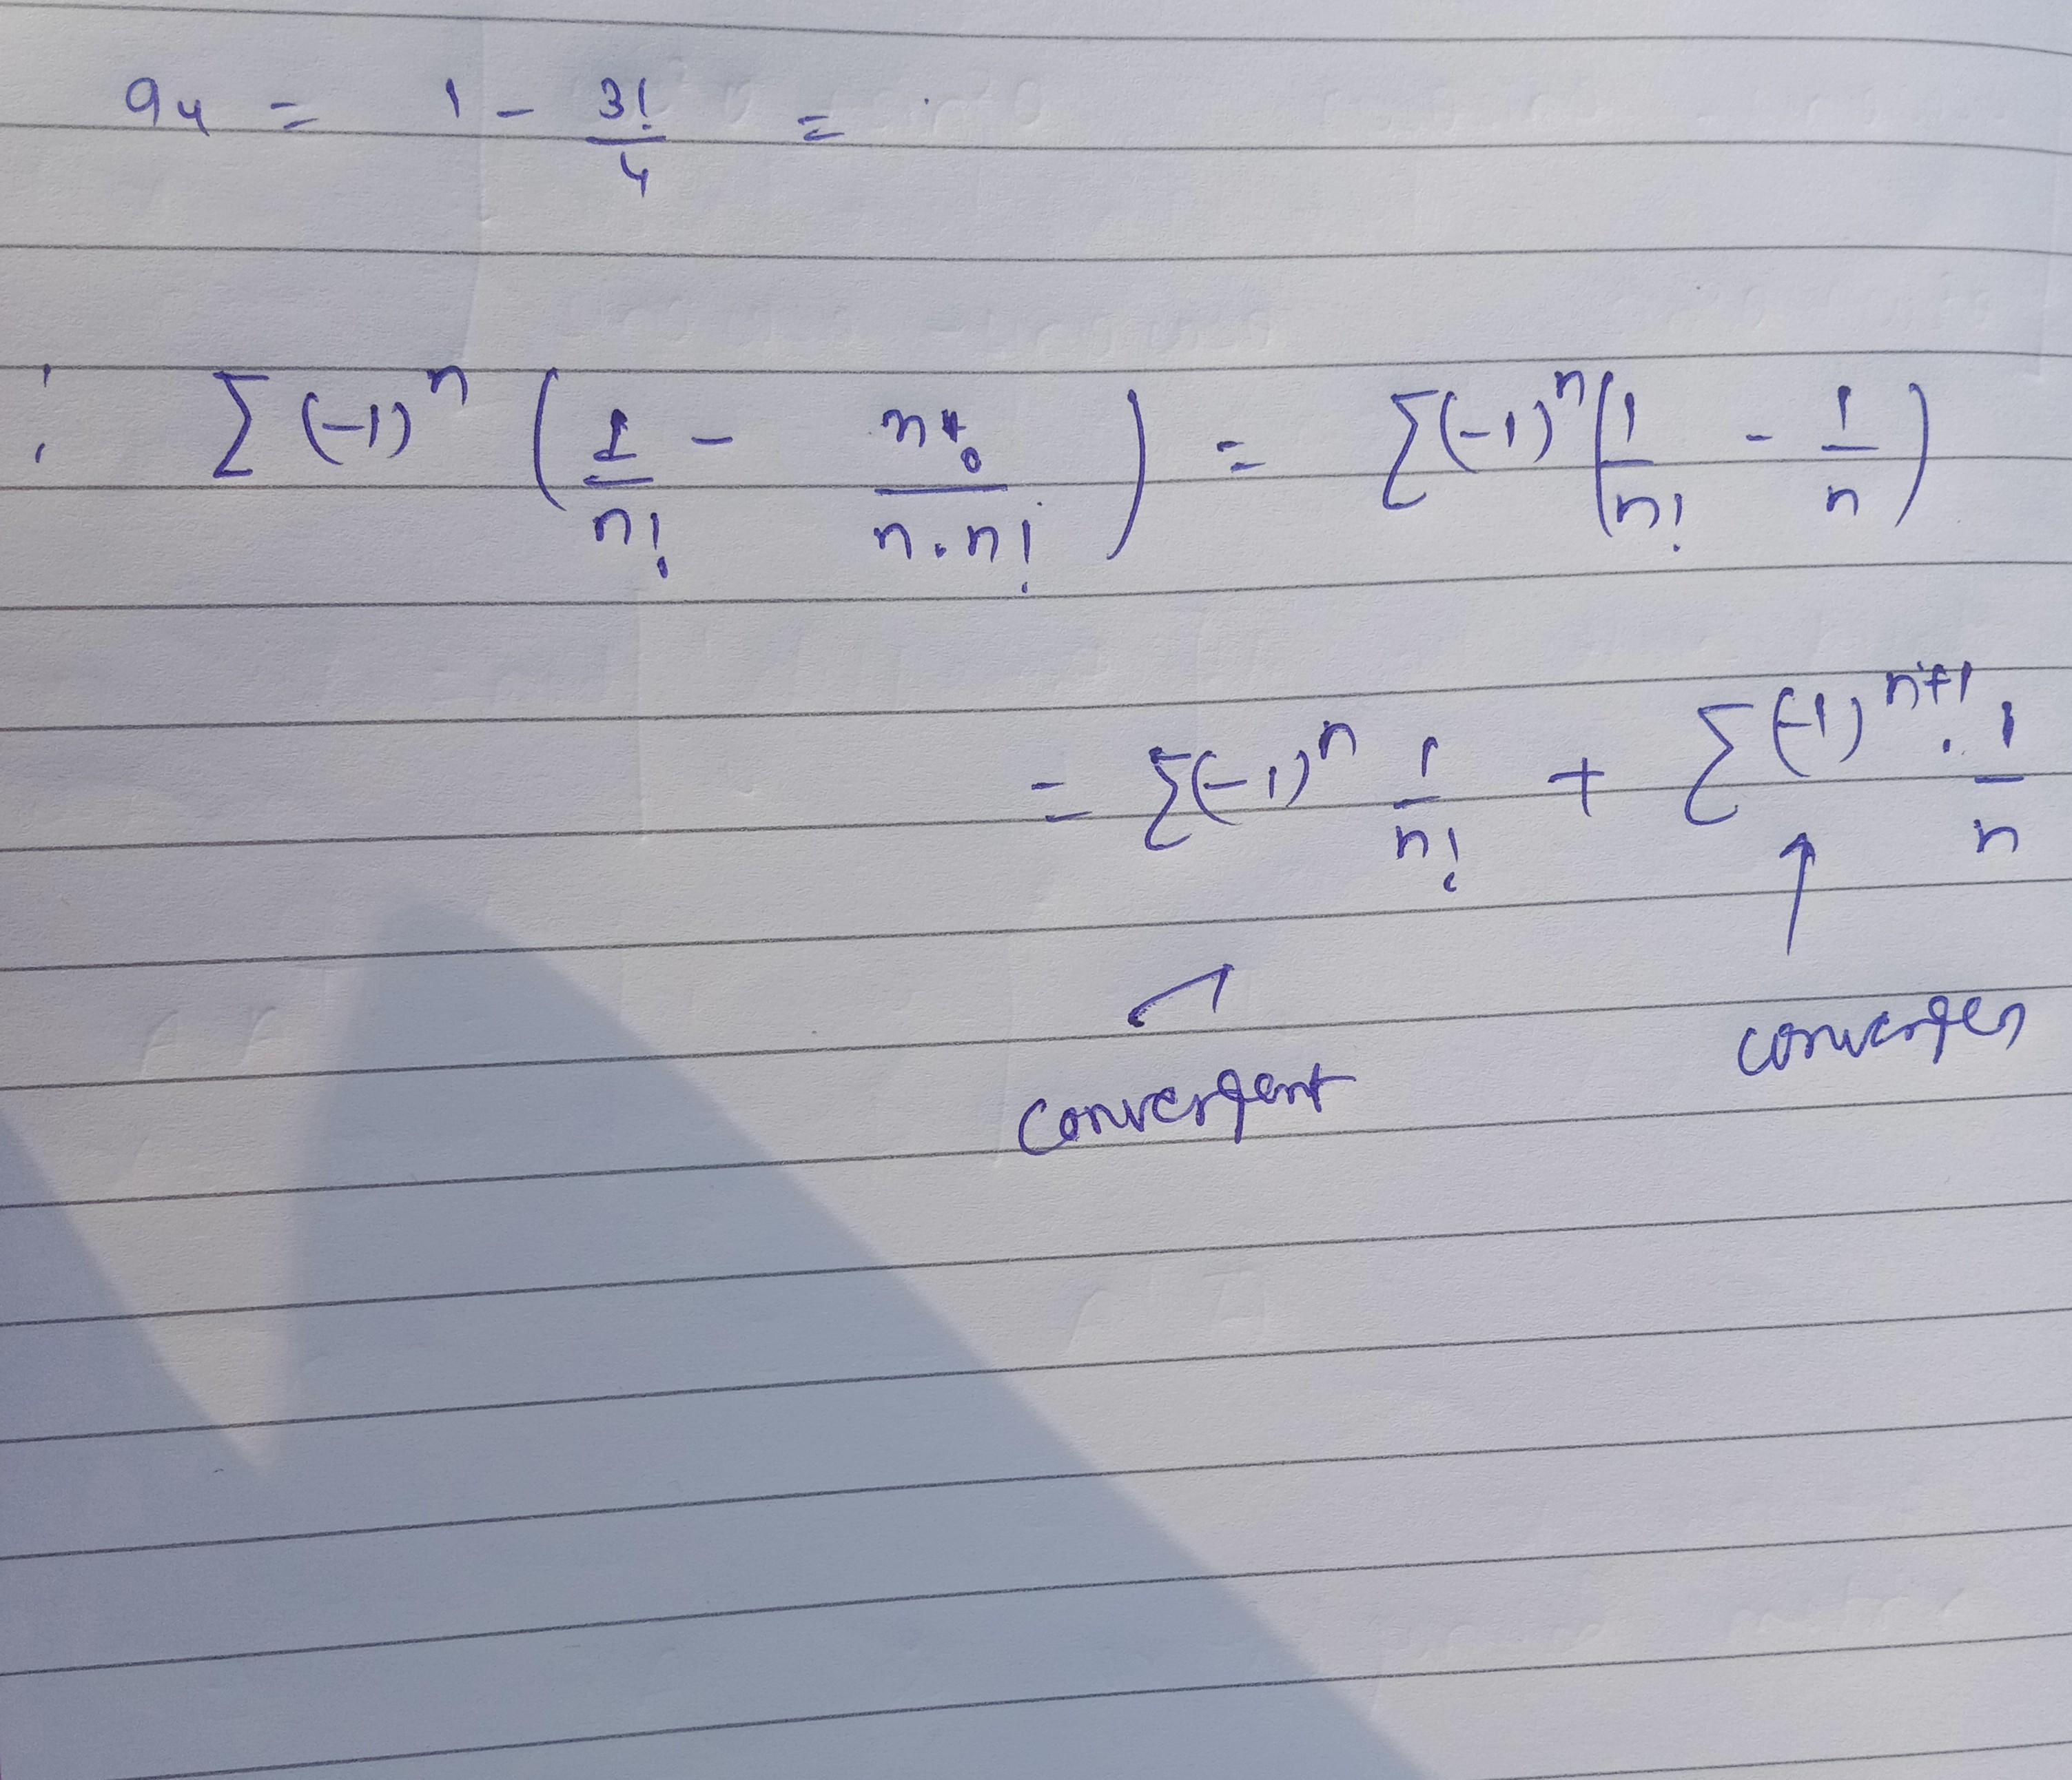 a₄ = 1 - 3!/4 =
∴ Σ(-1)ⁿ (1/n! - n!/n.n!) = Σ(-1)ⁿ(1/n! - 1/n)
= Σ(-1)ⁿ 1/n! + Σ(-1)ⁿ⁺¹ . 1/n
↑ ↑
convergent converges